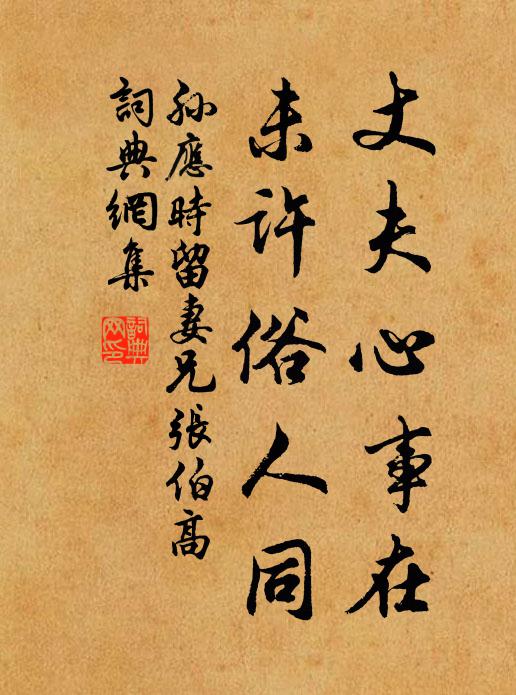 丈夫心事在
未許俗人同
孫應時留妻兄張伯高
詞典網集
詞典网印